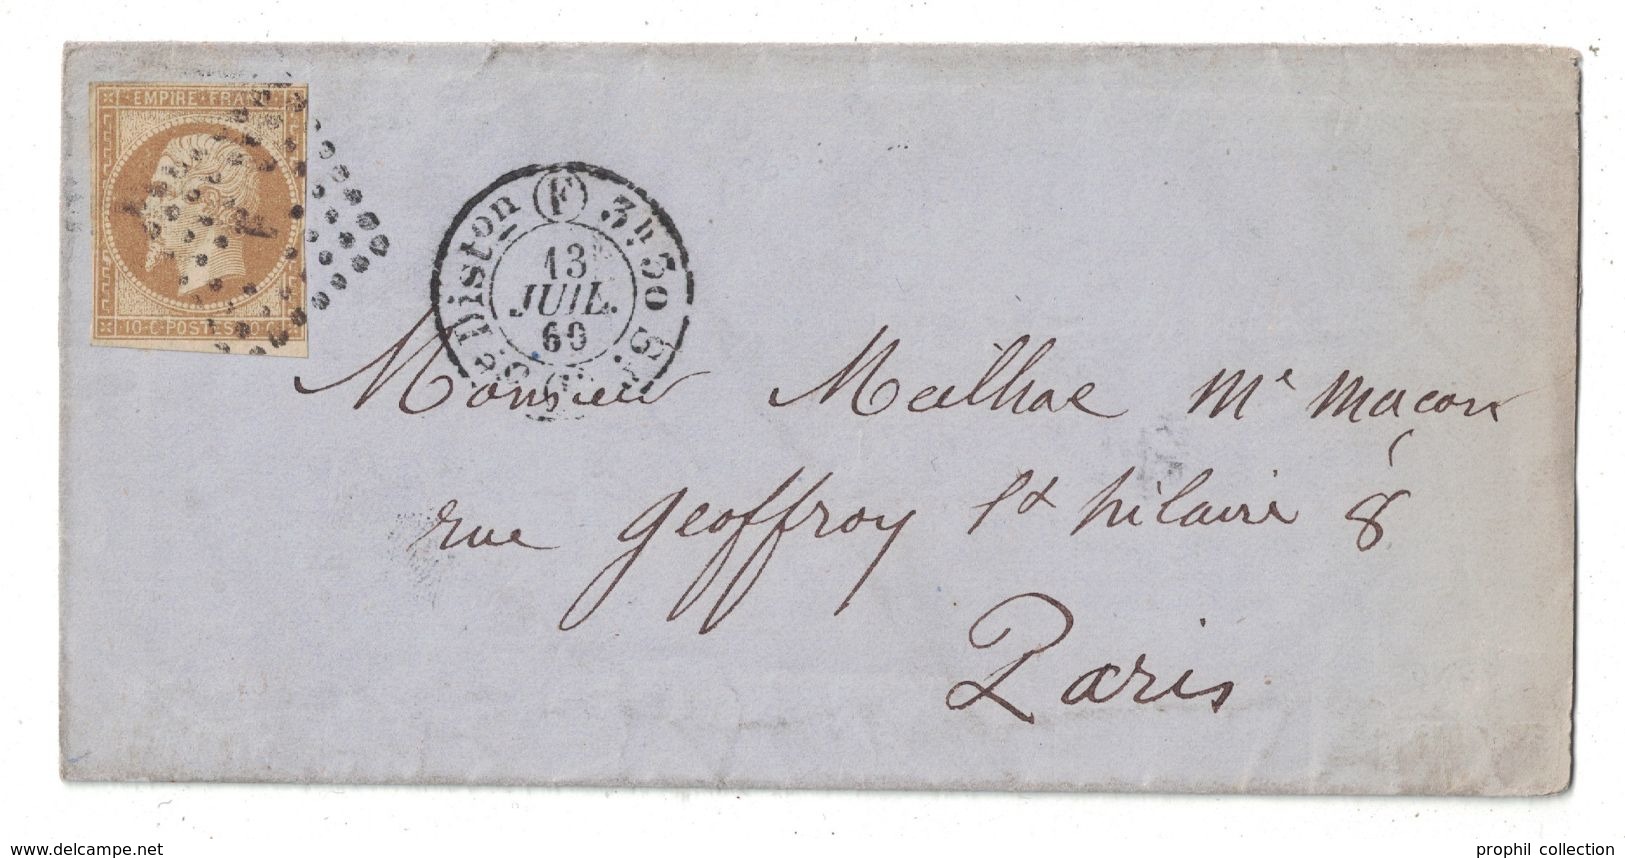 EMPIRE FRANC
10 C POSTES 10 C
F
Diston F 3h 30 S
13
JUIL.
60
Monsieur Meilhac Me Maçon
rue Geoffroy St hilaire 8
Paris
delcampe.net
prophil collection